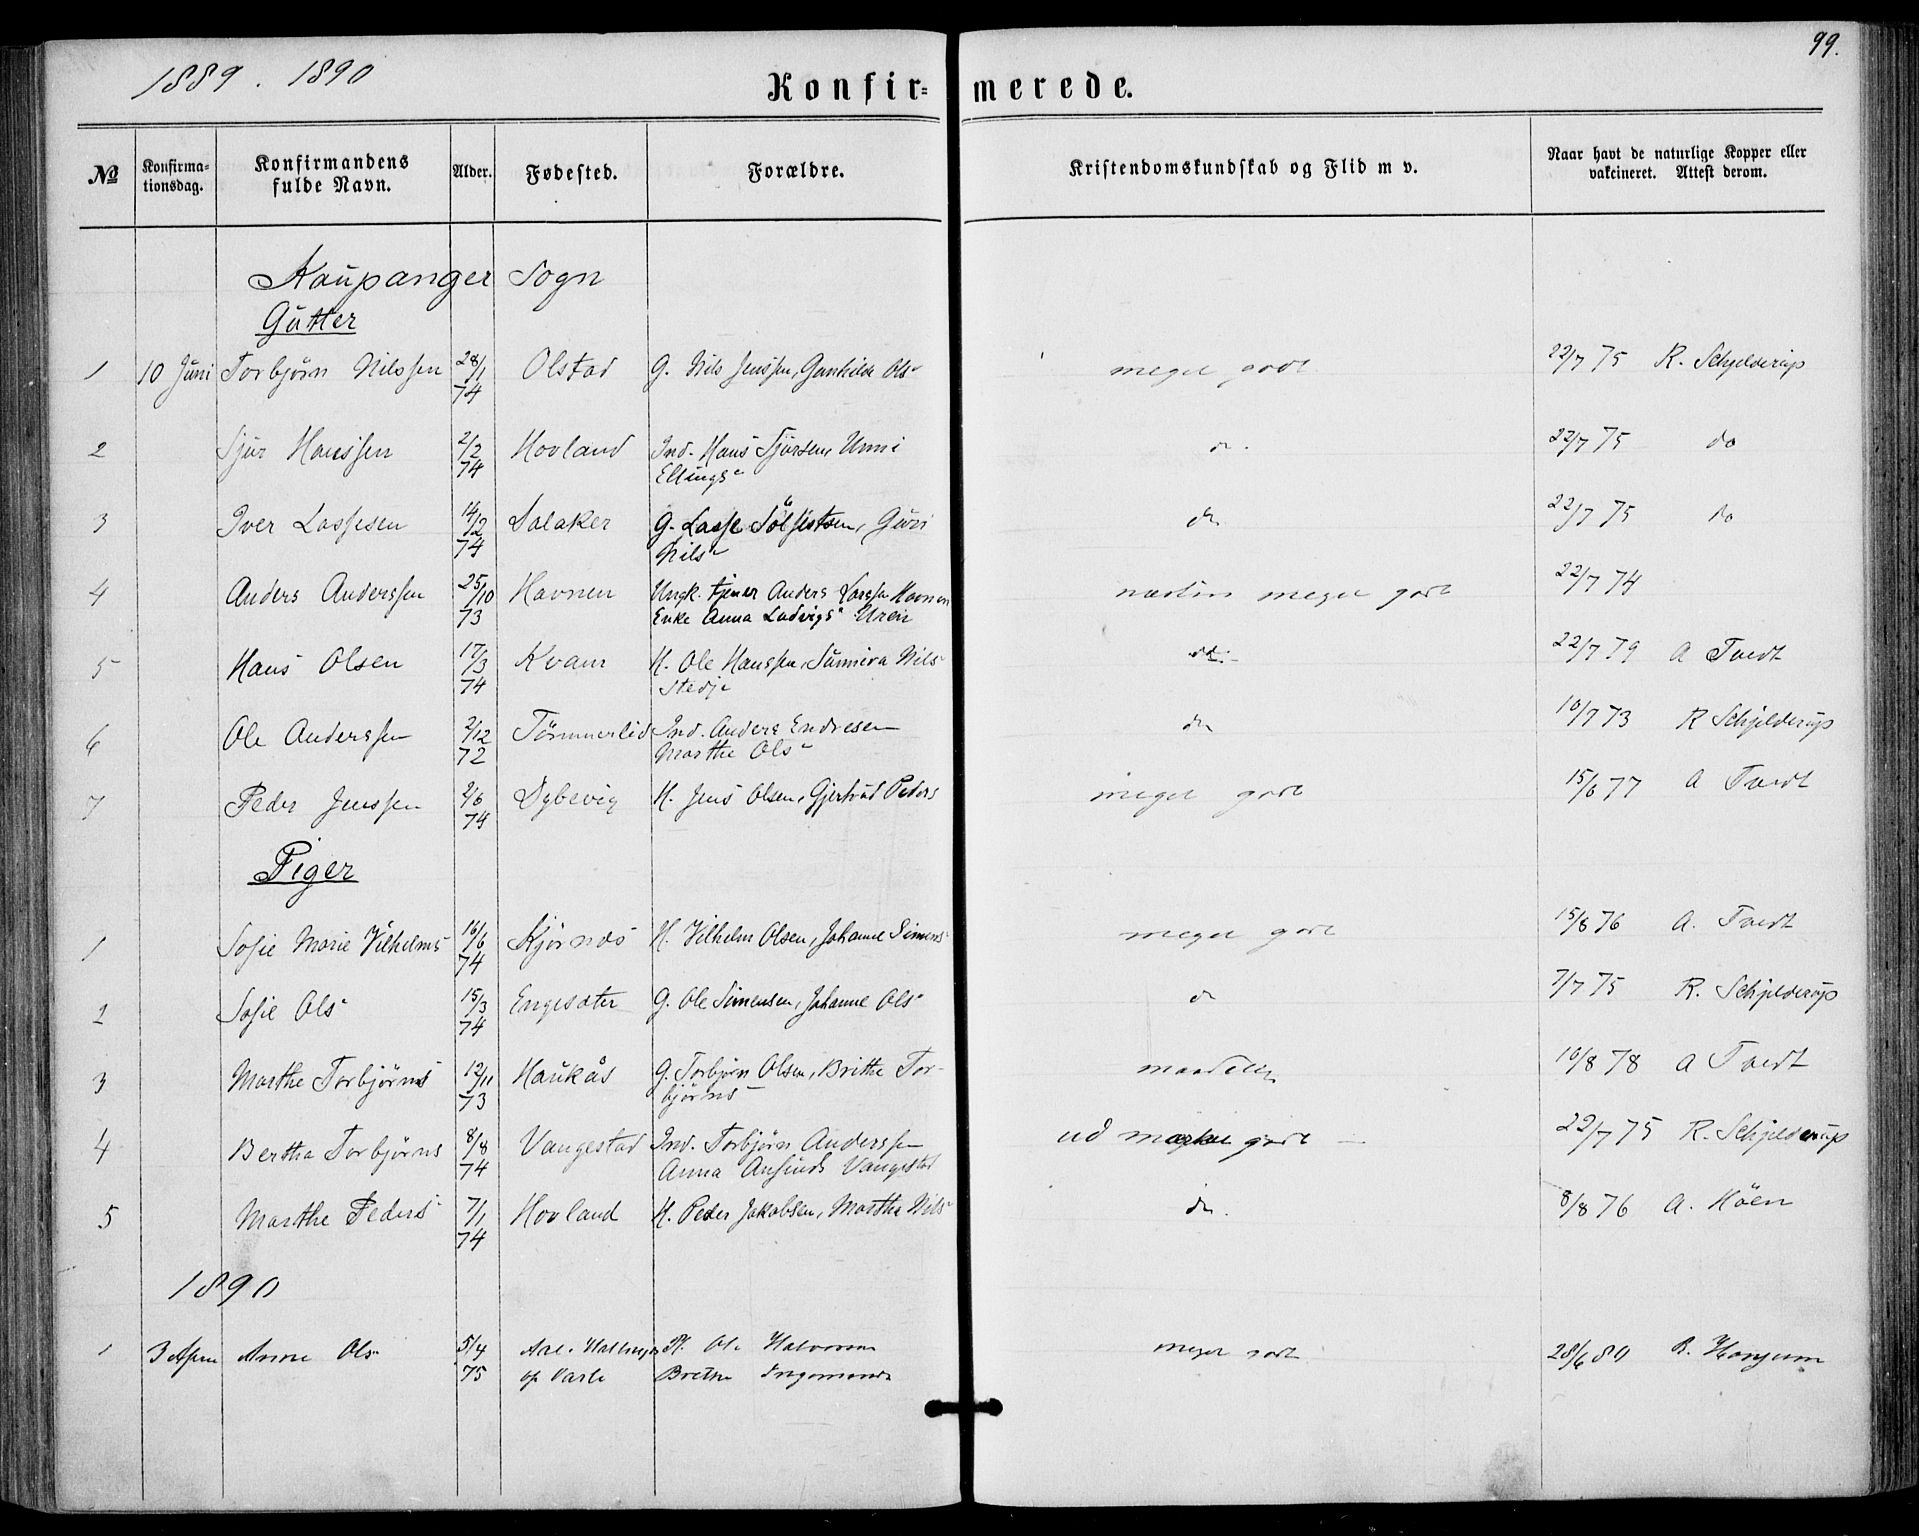 1889. 1890
99.
Konfir- merede.
№ Konfirma-tionsdag. Konfirmandens fulde Navn. Alder. Fødested. Forældre. Kristendomskundskab og Flid m v. Naar havt de naturlige Kopper eller vakcineret. Attest derom.
Kaupanger Sogn
Gutter
1 10 Juni Torbjørn Nilssen 28/1 74 Olstad G. Nils Jenssen, Guntilde Ols- meget godt 22/7 75 R. Schjelderup
2 Sjur Hanssen 2/2 74 Hovland Ind. Hans Sjursen, Unni Ellings- do. 22/7 75 do
3 Iver Lassesen 14/2 74 Lalaker G. Lasse Sølfestsen, Guri Nils- do 22/7 75 do
4 Anders Anderssen 25/10 73 Havnen Ungk. tjener Anders Larssen Havnen Enke Anna Ludvigs- Uren næsten meget godt 22/7 74
5 Hans Olsen 17/3 74 Kvam H. Ole Hanssen, Sunniva Nils- Stedje do. 22/7 79 A Tvedt
6 Ole Anderssen 2/12 72 Tømmerlid Ind. Anders Endresen Marthe Ols- do 10/7 73 R Schjelderup
7 Peder Jenssen 2/6 74 Dybevig H. Jens Olsen, Gjertrud Peders meget godt 15/6 77 A Tvedt
Piger
1 Sofie Marie Vilhelms- 16/6 74 Kjørnæs H. Vilhelm Olsen, Johanne Simens- meget godt 15/8 76 A. Tvedt
2 Sofie Ols- 15/3 74 Engesæter G. Ole Simensen, Johanne Ols- do 7/7 75 R. Schjelderup
3 Marthe Torbjørns- 12/11 73 Haukås G. Torbjørn Olsen, Brithe Tor-bjørns- maadelig 10/8 78 A Tvedt
4 Bertha Torbjørns 8/8 74 Vangestad Ind. Torbjørn Anderssen Anna Ansfinds Vangestad ud mærket godt 22/7 75 R. Schjelderup
5 Marthe Peders- 7/1 74 Hovland H. Peder Jakobsen, Martha Nils- do. 8/8 76 A. Høen
1890
1 3 April Anne Ols- 5/4 75 Aal Ole Halvorsen Brethe Ingemunds meget godt 28/6 80